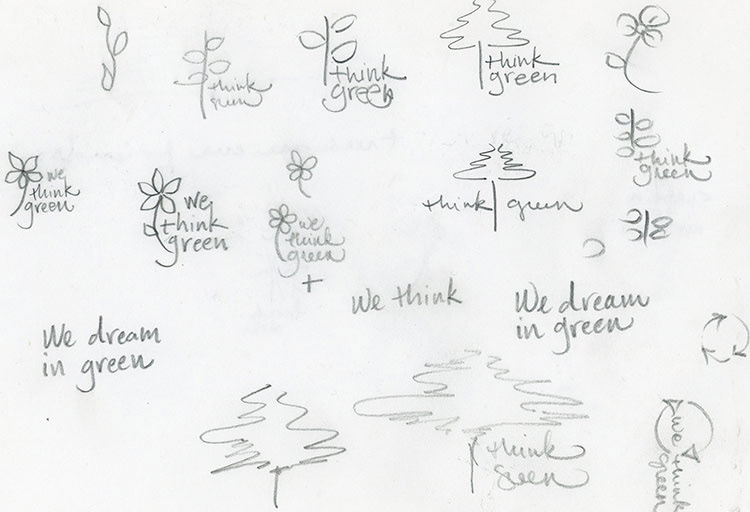 think
green
think
green
think
green
think
green
we
think
green
we
think
green
we
think
green
think green
We think
We dream
in green
We dream
in green
think
green
we think
green